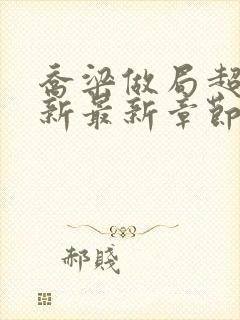 喬梁做局超
新最新章節
郝賤